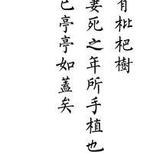 有枇杷樹
妻死之年所手植也
已亭亭如蓋矣